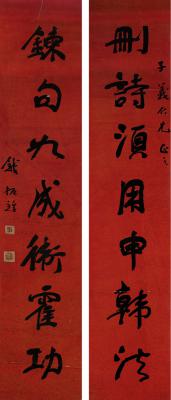 刪詩須用申韓法
子義仁兄正之
鍊句如成衛霍功
錢振鍠